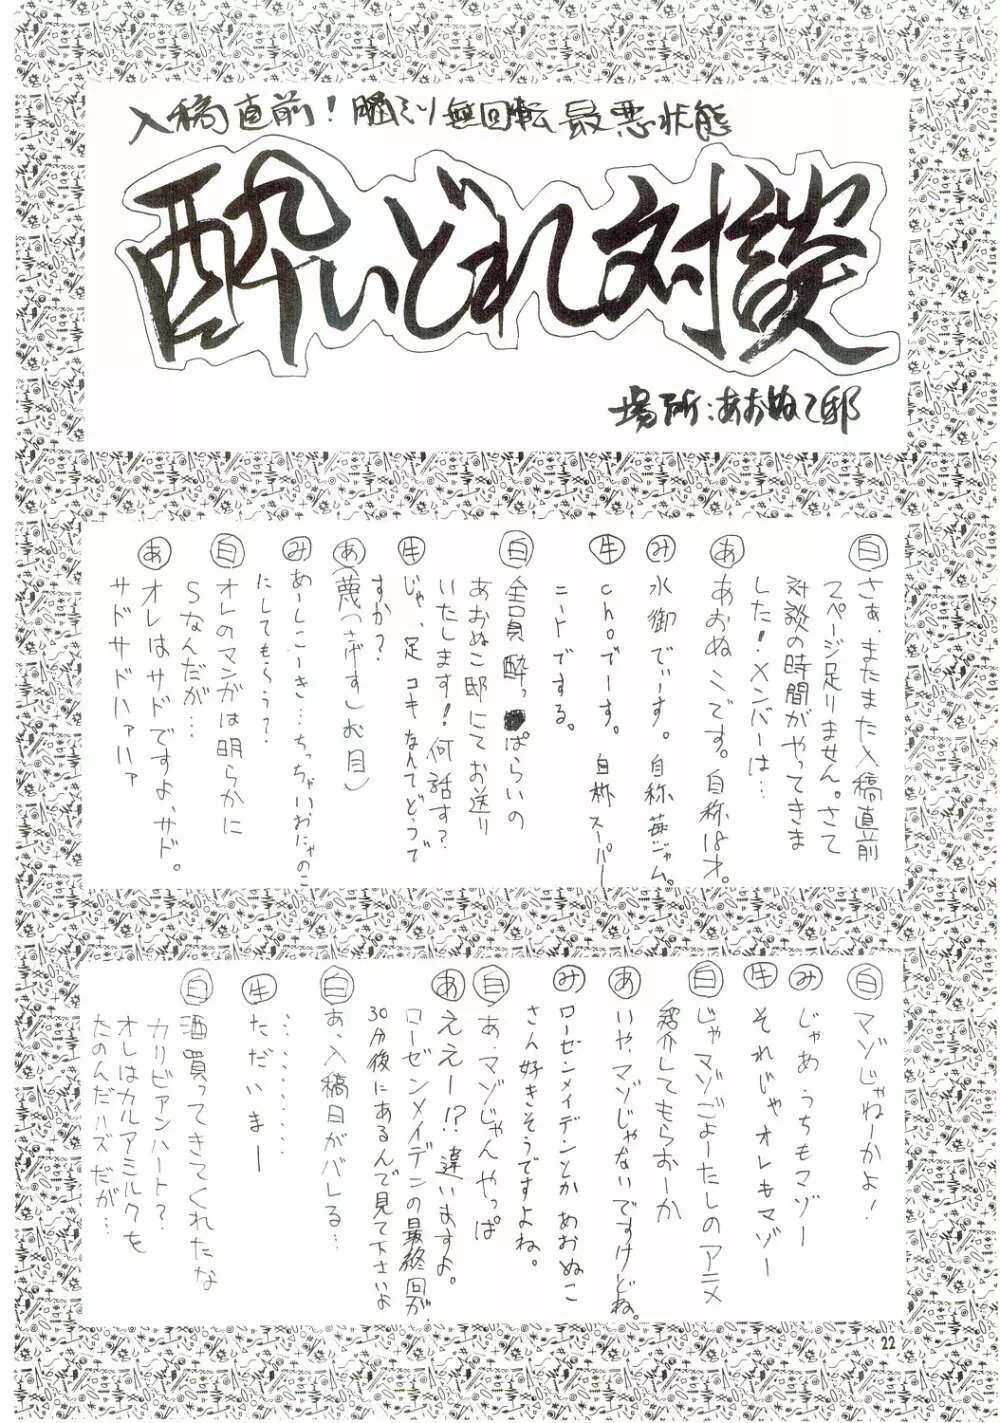 入稿直前!脳ミソ無回転最悪状態
酔いどれ対談
場所:あおぬこ邸
白 さぁ、またまた入稿直前
でページ足りません。さて
対談の時間がやってきま
した!メンバーは…
あ あおぬこです。自称は才。
み 水御でぃーす。自称苺ジャム。
牛 choでーす。自称スーパー
ニートでする。
白 全員酔っぱらいの
あおぬこ邸にてお送り
いたします!何話す?
牛 じゃ、足コキなんてどうで
すか?
あ (蔑(さげす)む目)
み あーしこーき…ちっちゃいおにゃのこ
にしてもらう?
白 オレのマンガは明らかに
Sなんだが…
あ オレはサドですよ、サド。
サドサドハァハァ
白 マゾじゃねーかよ!
み じゃあうちもマゾー
牛 それじゃオレもマゾー
白 じゃマゾごよーたしのアニメ
紹介してもらおーか
あ いや、マゾじゃないですけどね。
み ローゼンメイデンとかあおぬこ
さん好きそうですよね。
白 あ、マゾじゃんやっぱ
あ ええー!?違いますよ。
ローゼンメイデンの最終回が
30分後にあるんで見て下さいよ
白 あ、入稿日がバレる…
………
牛 ただいまー
白 酒買ってきてくれたな
カリビアンハート?
オレはカルアミルクを
たのんだハズだが…
22